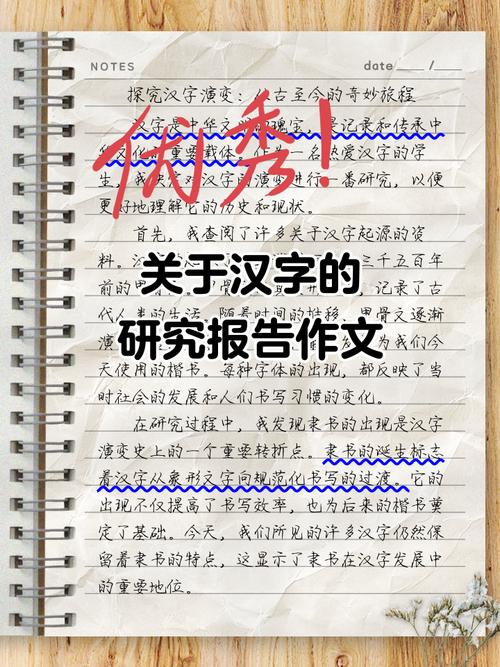 NOTES
date /
探究汉字演变：从古至今的奇妙旅程
优秀！
汉字是中华 瑰宝 是记录和传承中
华文化的重要载体 作为一名热爱汉字的学
生，我决定对汉字的演变进行 番研究，以便
更好地理解它的历史和现状。
首先，我查阅了许多关于汉字起源的资
料。汉 三千五百年
前的甲 记录了古
代人类的生活。随着时间的推移，甲骨文逐渐
演 为我们今
天使用的楷书。每种字体的出现，都反映了当
时社会的发展和人们书写习惯的变化。
关于汉字的
研究报告作文
在研究过程中，我发现隶书的出现是汉字
演变史上的一个重要转折点。隶书的诞生标志
着汉字从象形文字向规范化书写的过渡。它的
出现不仅提高了书写效率，也为后来的楷书奠
定了基础。今天，我们所见的许多汉字仍然保
留着隶书的特点，这显示了隶书在汉字发展中
的重要地位。